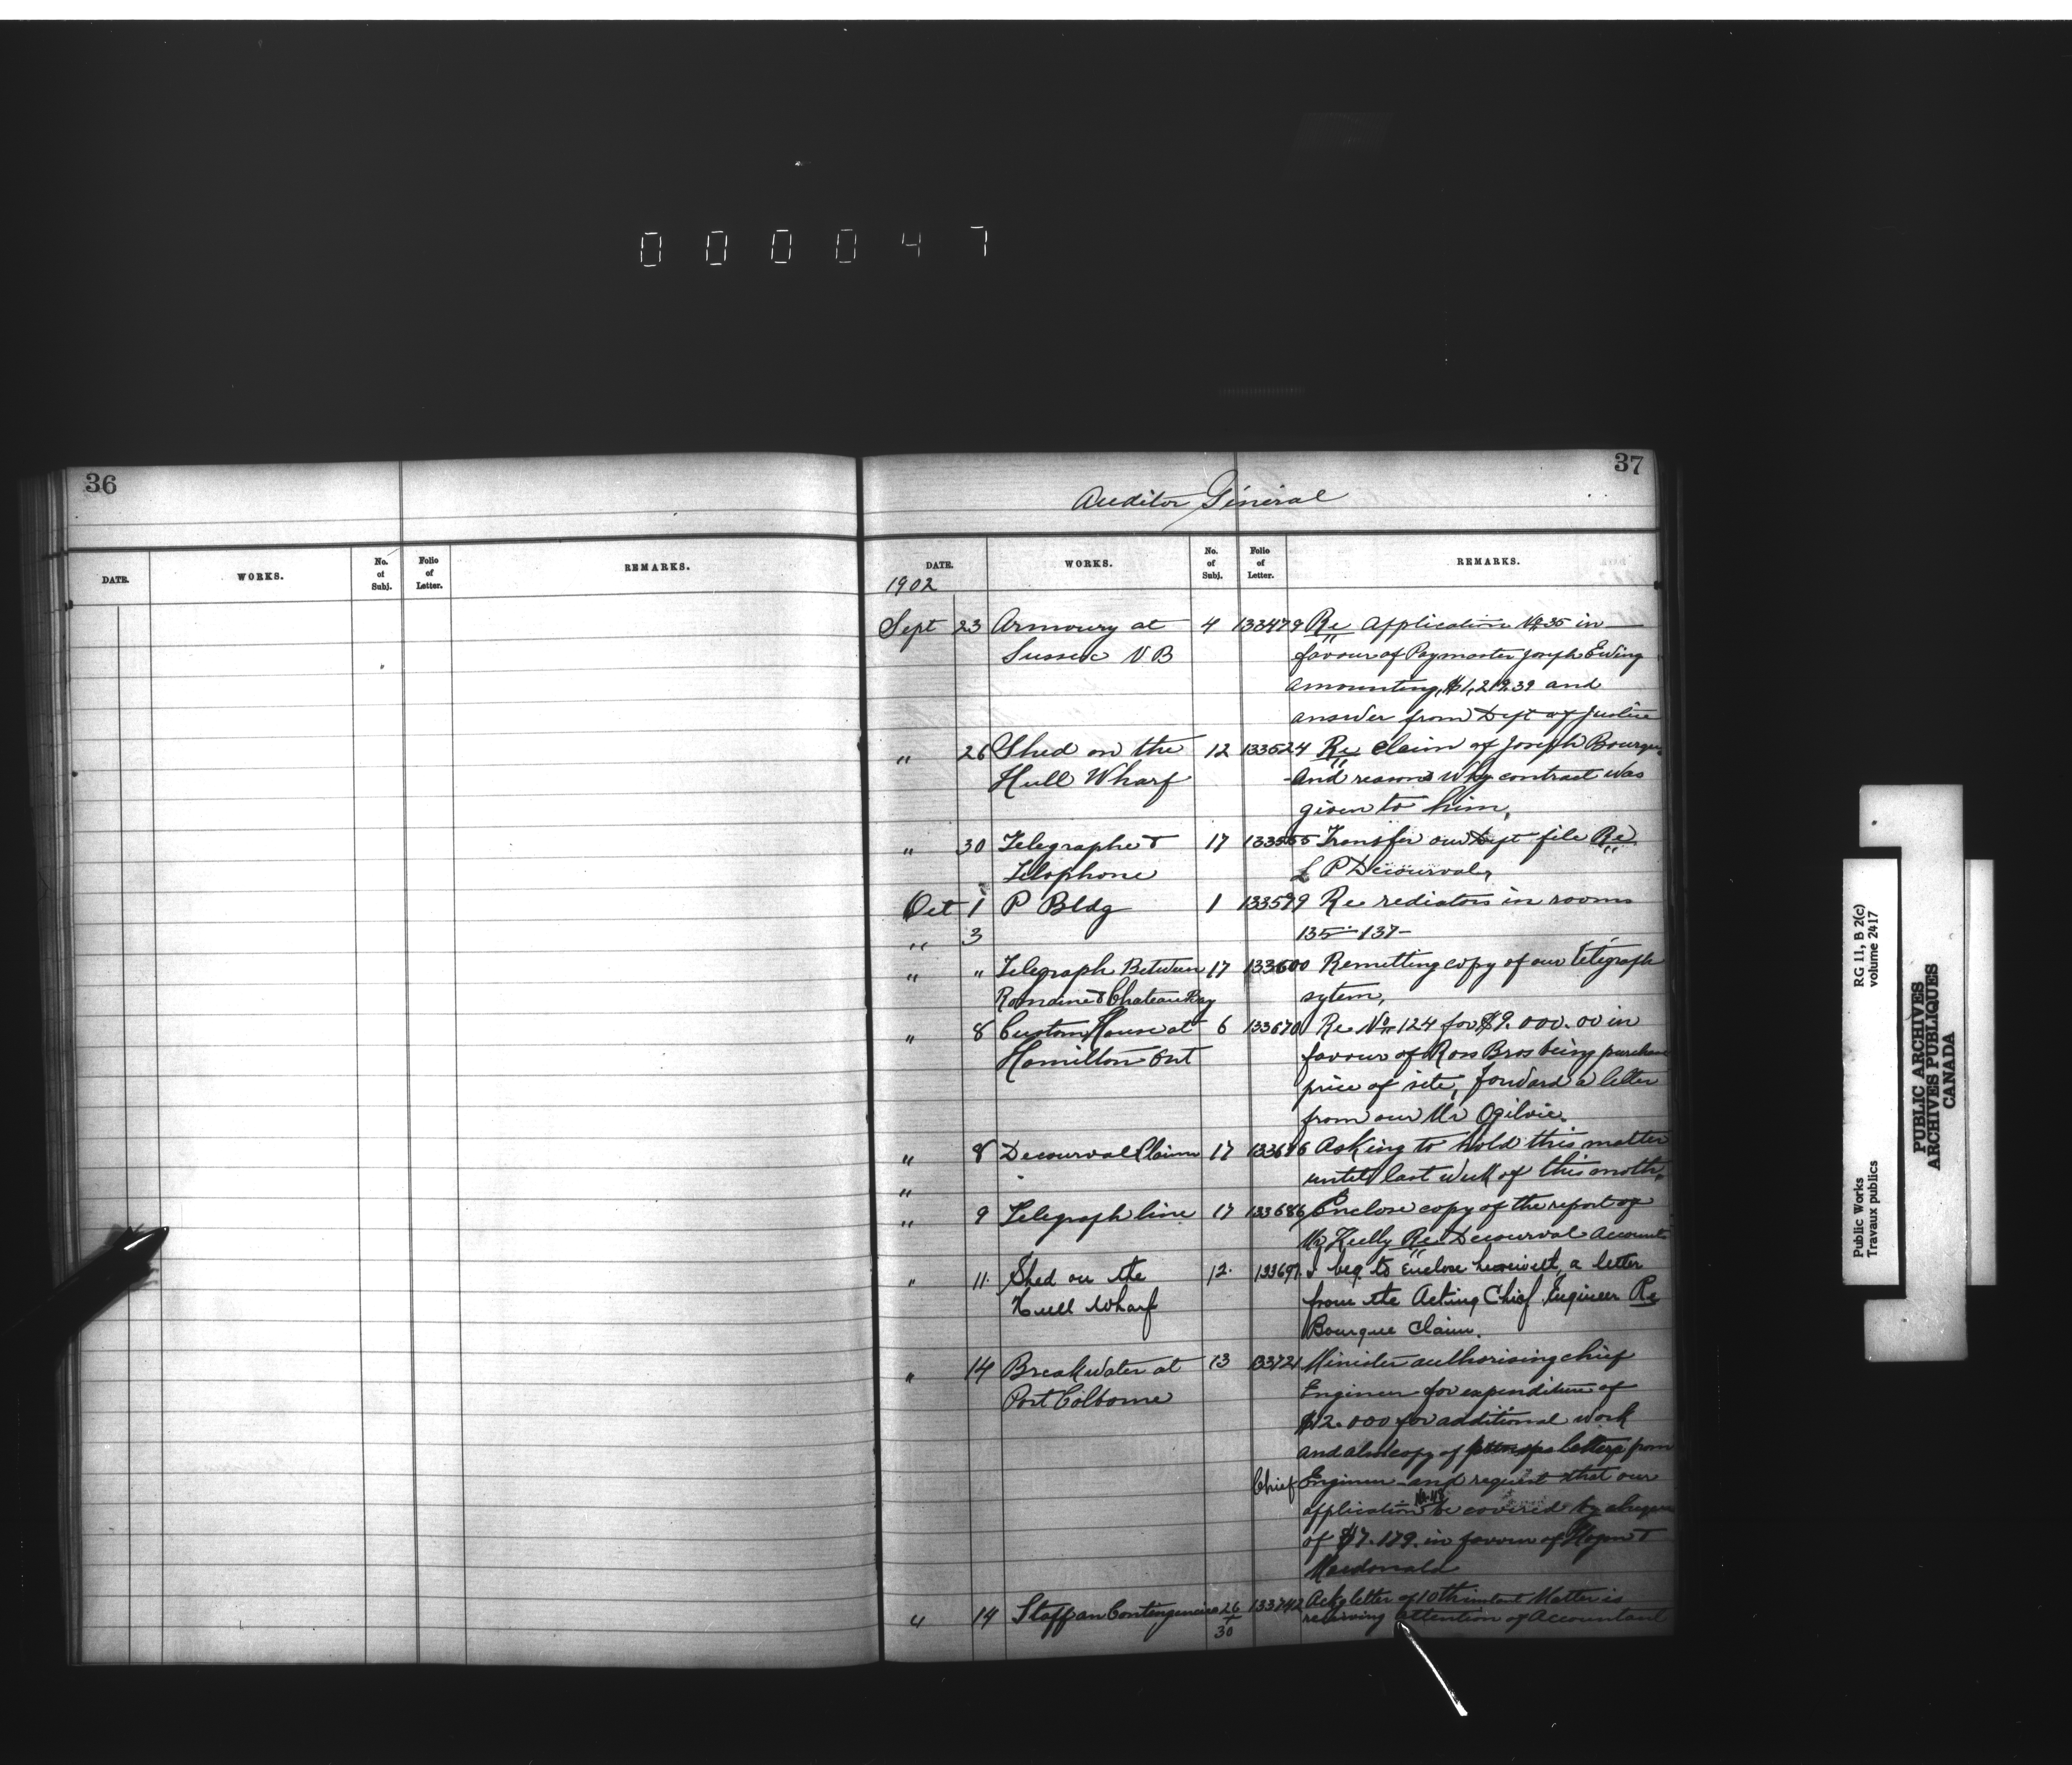 000047
36
DATE. WORKS. No. of Subj. Folio of Letter. REMARKS.
37
Auditor Général
DATE. WORKS. No. of Subj. Folio of Letter. REMARKS.
1902
Sept 23 Armoury at 4 133479 Re Application No 35 in
Sussex N B favour of Paymaster Joseph Ewing
amounting, $1,219.39 and
answer from Dept of Justice
" 26 Shed on the 12 133524 Re claim of Joseph Bourque
Hull Wharf and reasons why contract was
given to him,
" 30 Telegraphe & 17 133565 Transfer our Dept file Re
Telephone L P Decourval,
Oct 1 P Bldg 1 133599 Re rediators in rooms
" 3 135-137-
" " Telegraph Between 17 133600 Remitting copy of our télégraph
Romaine & Chateau Bay sytem,
" 8 Custom House at 6 133670 Re No 124 for $9.000.00 in
Hamilton Ont favour of Ross Bros being purchase
price of site, forward a letter
from our Mr Ogilvie.
" 8 Decourval Claim 17 133676 Asking to hold this matter
" until last week of this month,
" 9 Telegraph line 17 133686 Enclose copy of the report of
Mr Keelly Re Decourval Account
" 11. Shed on the 12. 133697. I beg to Enclose herewith, a letter
Hull Wharf from the Acting Chief Engineer Re
Bourque Claim.
" 14 Breakwater at 13 133721 Minister authorising chief
Port Colborne Engineer for expenditure of
$12.000 for additional work
and also copy of letters from
Chief Engineer and request that our
application be covered by cheque
of $7.179. in favour of Hogan &
Macdonald
" 14 Staff an Contengencies 26 133742 Ackg letter of 10th instant Matter is
30 receiving attention of Accountant
RG 11, B 2(c)
volume 2417
Public Works
Travaux publics
PUBLIC ARCHIVES
ARCHIVES PUBLIQUES
CANADA